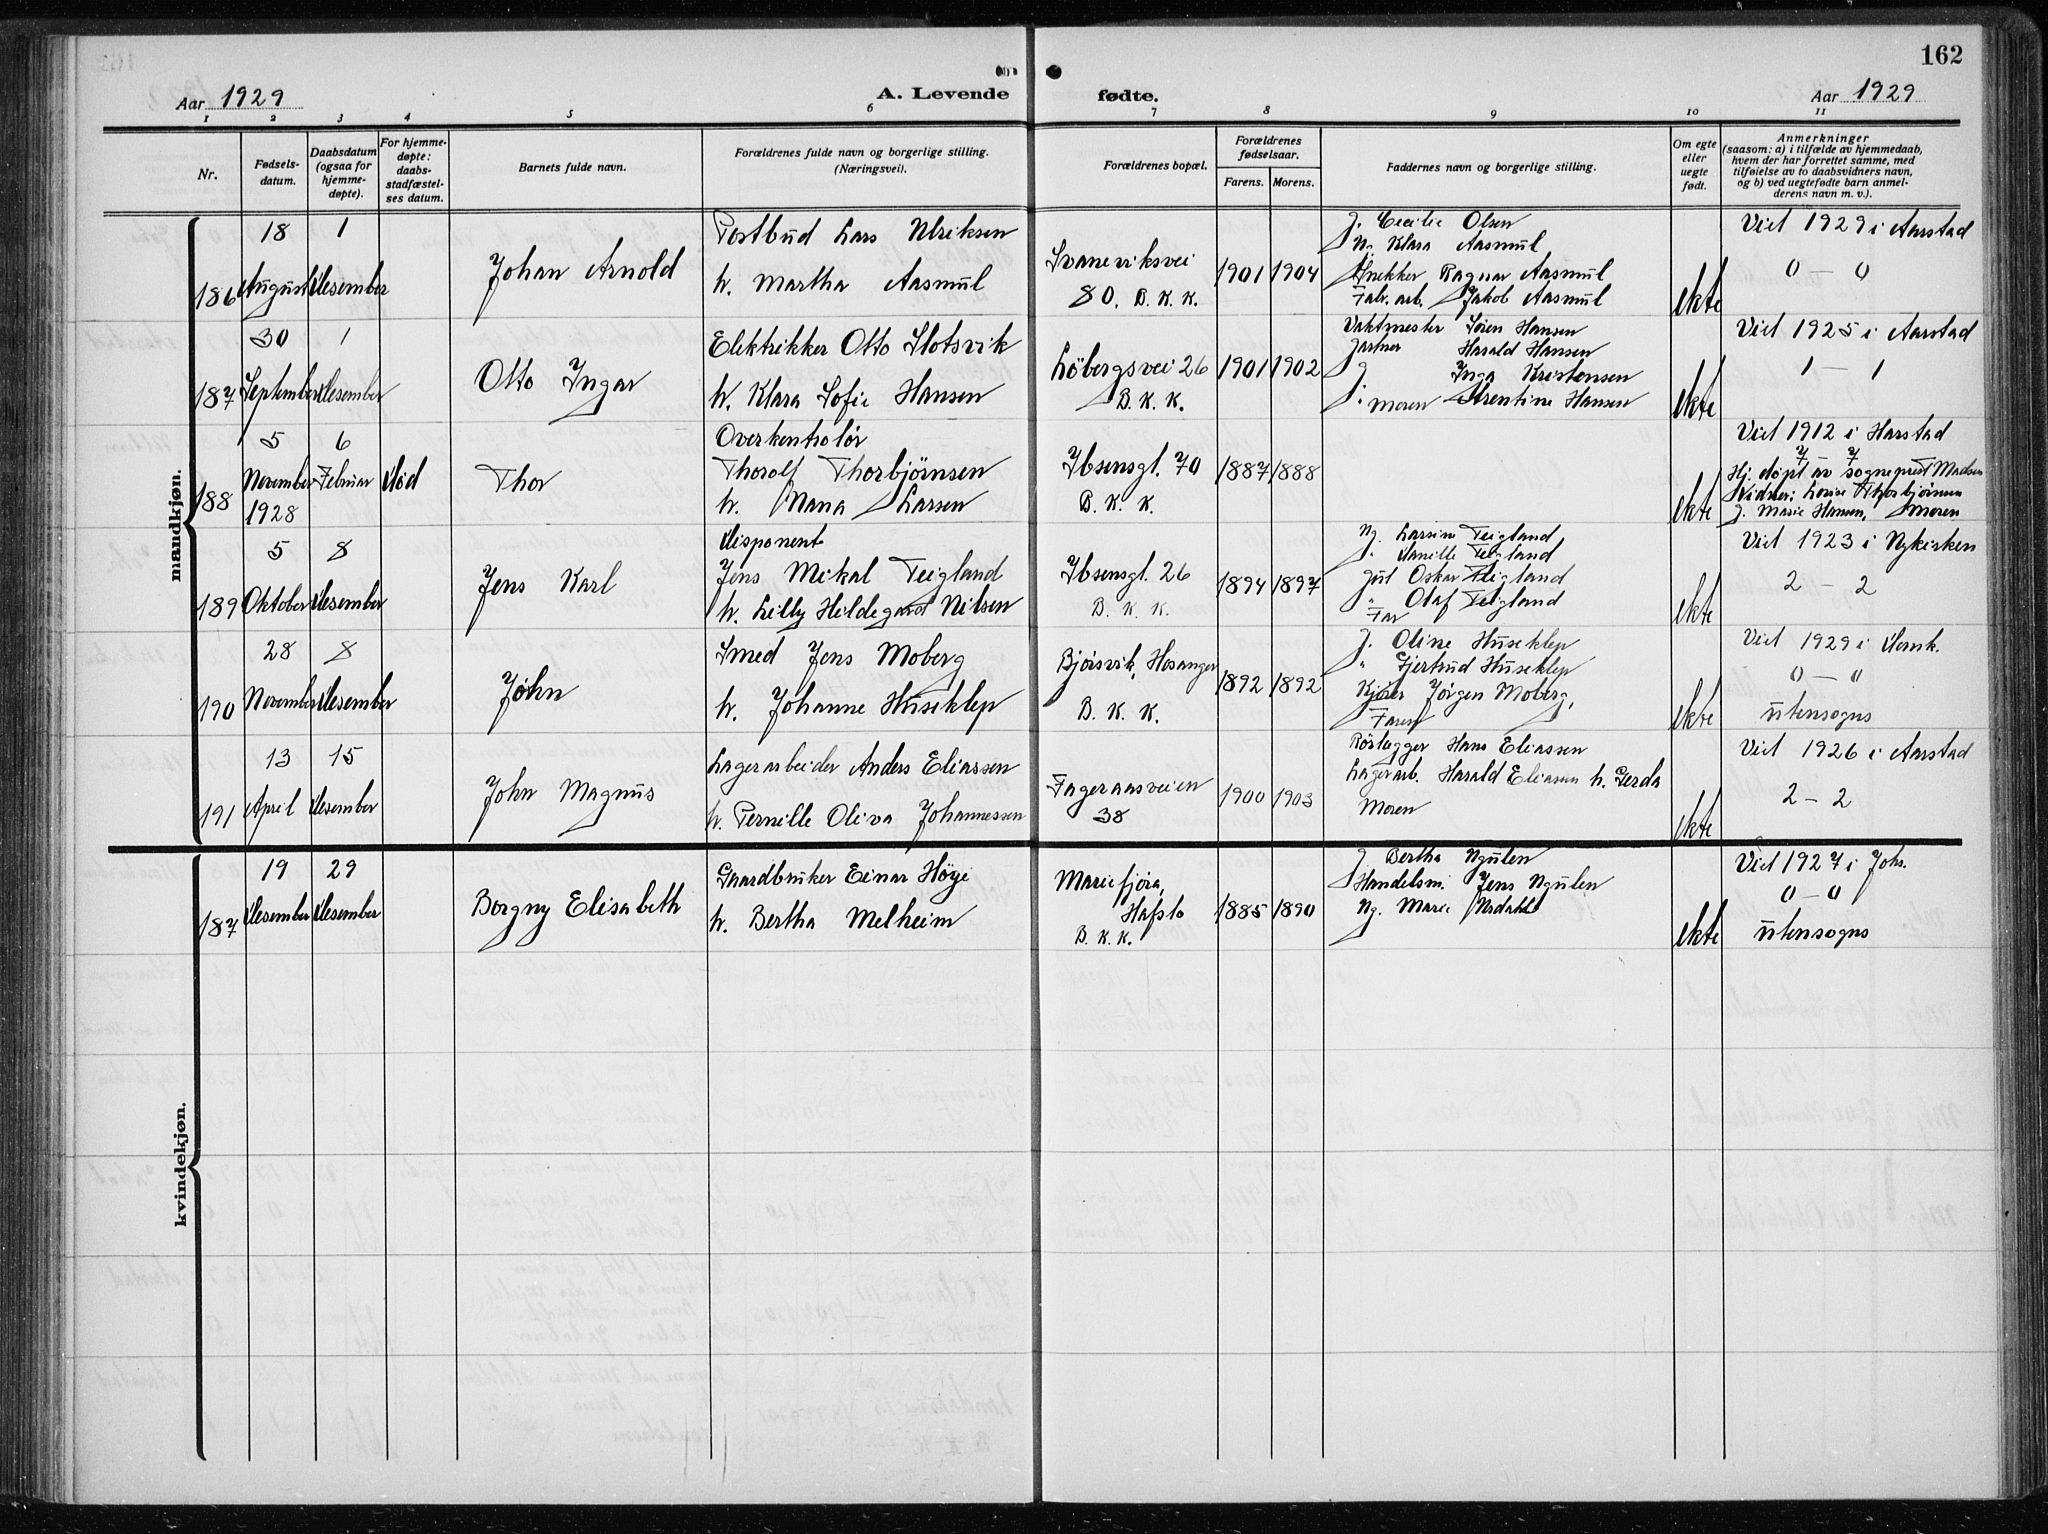 162
Aar 1929
A. Levende
fødte.
Aar 1929
1 2 3 4 5 6 7 8 9 10 11
Nr.
Fødsels-
datum.
Daabsdatum
(ogsaa for
hjemme-
døpte).
For hjemme-
døpte:
daabs-
stadfæstel-
ses datum.
Barnets fulde navn.
Forældrenes fulde navn og borgerlige stilling.
(Næringsvei).
Forældrenes bopæl.
Forældrenes
fødselsaar.
Farens. Morens.
Faddernes navn og borgerlige stilling.
Om egte
eller
uegte
født.
Anmerkninger
(saasom: a) i tilfælde av hjemmedaab,
hvem der har forrettet samme, med
tilføielse av to daabsvidners navn,
og b) ved uegtefødte barn anmel-
derens navn m. v.).
mandkjøn.
186
18
August
1
Desember
Johan Arnold
Postbud Lars Ulriksen
h. Martha Aasmul
Svaneviksvei
80. B. K. K.
1901 1904
J. Cecilie Olsen
Ng. Klara Aasmul
Snekker Ragnar Aasmul
Fabr. arb. Jakob Aasmul
ekte
Viet 1929 i Aarstad
0 — 0
187
30
September
1
Desember
Otto Ingar
Elektrikker Otto Slotsvik
h. Klara Sofie Hansen
Løbergsvei 26
B. K. K.
1901 1902
Vaktmester Søren Hansen
Gartner Harald Hansen
J. Inga Kristensen
J. Moren Arentine Hansen
ekte
Viet 1925 i Aarstad
1 — 1
188
5
November
1928
6
Februar
Død
Thor
Overkontrolør
Thorolf Thorbjørnsen
h. Nana Larsen
Ibsensgt. 70
B. K. K.
1887 1888
ekte
Viet 1912 i Harstad
7 — 7
Hj. døpt av sogneprest Madsen
Vidner: Lovise Thorbjørnsen
J. Marie Hansen, Moren
189
5
Oktober
8
Desember
Jens Karl
Disponent
Jens Mikal Teigland
h. Lilly Hildegard Nilsen
Ibsensgt. 26
B. K. K.
1894 1897
Ng. Larsine Teigland
J. Teigland
Gul Oskar Teigland
" Olaf Teigland
Far
ekte
Viet 1923 i Nykirken
2 — 2
190
28
November
8
Desember
John
Smed Jens Moberg
h. Johanne Huseklep
Bjørsvik, Hosanger
B. K. K.
1892 1892
J. Oline Huseklep
" Gjertrud Huseklep
Kjører Jørgen Moberg,
Faren
ekte
Viet 1929 i Domk.
0 — 0
utensogns
191
13
April
15
Desember
John Magnus
Lagerarbeider Anders Eliassen
h. Pernille Oliva Johannessen
Fageraasveien
38
1900 1903
Rørlægger Hans Eliassen
Lagerarb. Harald Eliassen h. Gerda
Moren
ekte
Viet 1926 i Aarstad
2 — 2
kvindekjøn.
187
19
Desember
29
Desember
Borgny Elisabeth
Gaardbruker Einar Høye
h. Bertha Melheim
Mariefjøra,
Hafslo
B. K. K.
1885 1890
J. Bertha Ngulen
Handelsm. Jens Ngulen
Ng. Marie Nodahl
ekte
Viet 1927 i Johs.
0 — 0
utensogns